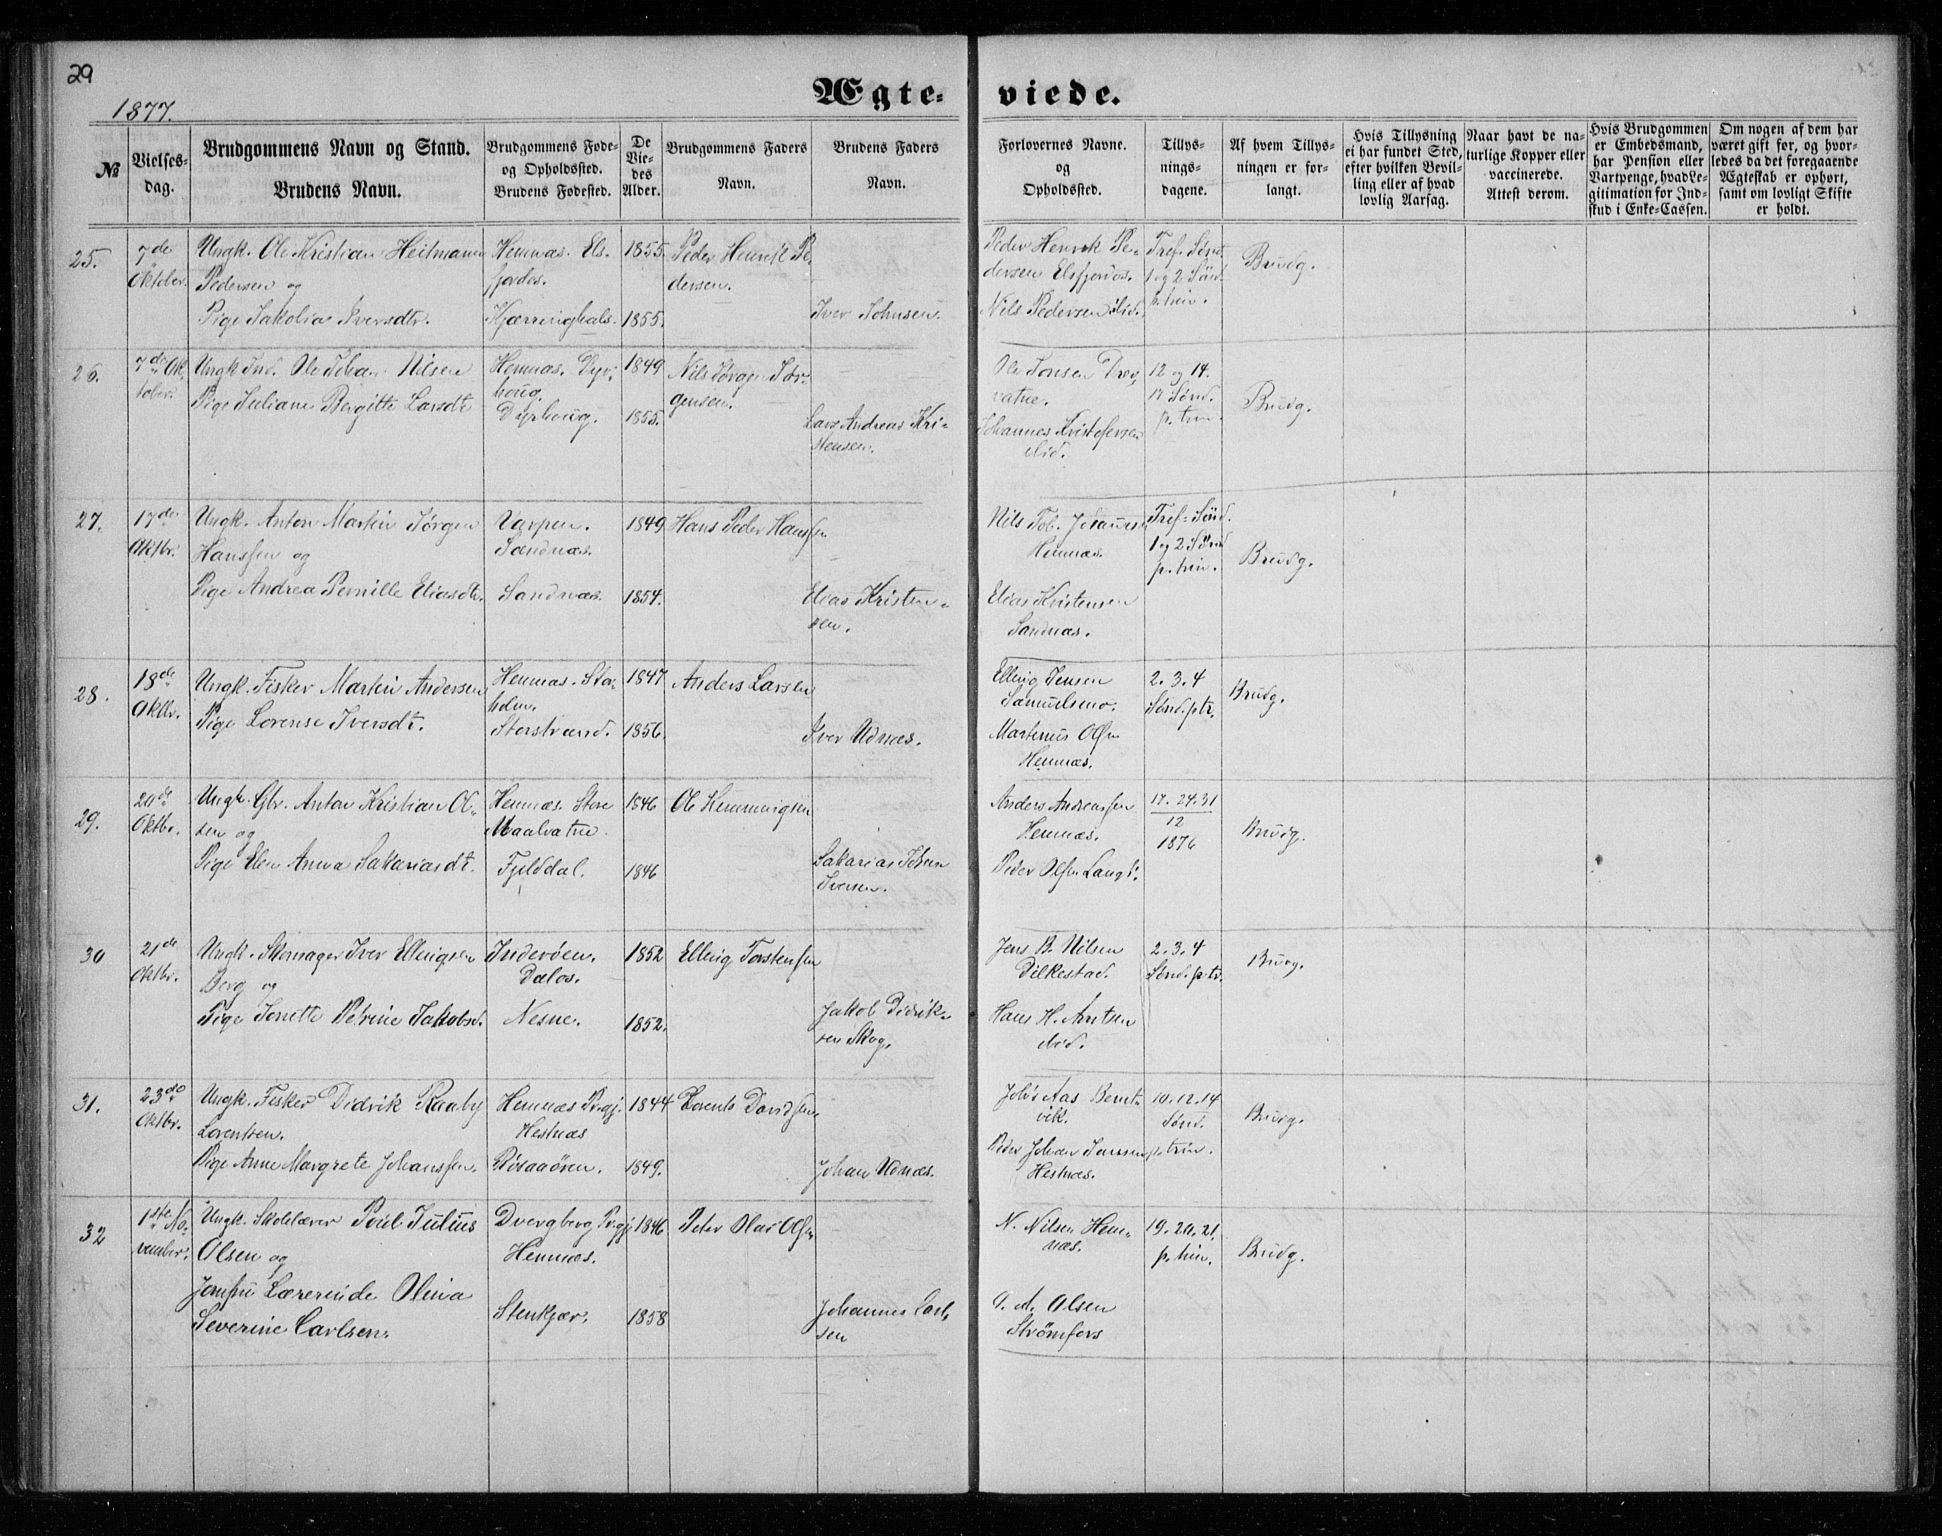 29
1877.
Ægteviede.
№
Vielsesdag.
Brudgommens Navn og Stand.
Brudens Navn.
Brudgommens Fødeog Opholdssted.
Brudens Fødested.
De Viedes Alder.
Brudgommens Faders Navn.
Brudens Faders Navn.
Forlovernes Navne. og Opholdssted.
Tillysningsdagene.
Af hvem Tillysningen er forlangt.
Hvis Tillysning ei har fundet Sted, efter hvilken Bevilling eller af hvad lovlig Aarsag.
Naar havt de naturlige Kopper eller vaccinerede. Attest derom.
Hvis Brudgommen er Embedsmand, har Pension eller Vartpenge, hvad Legitimation for Indskud i Enke-Cassen.
Om nogen af dem har været gift før, og hvorledes da det foregaaende Ægteskab er ophørt, samt om lovligt Skifte er holdt.
25. 7de Oktober. Ungk. Ole Kristian Heitmann Hemnæs. Els- 1855. Peder Henrik Pe- Peder Henrik Pe- Tref. Sønd. Brudg.
Pedersen og fjorden. dersen. dersen Elsfjorden. 1 og 2 Sønd.
Pige Jakolia Iversdtr. Kjærringhals. 1855. Iver Johnsen. Nils Pedersen ibid. p. trin.
26. 7de Oktober. Ungk. Ind. Ole Johan Nilsen Hemnæs. Dyr- 1849 Nils Jørgen Jør- Ole Jonsen Drev- 12 og 14. Brudg.
houg. gensen. vatne. 17 Sønd.
Pige Juliane Bergitte Larsdt. Dyrhoug. 1855. Lars Andreas Kri- Johannes Kristofersen p. trin.
stensen. ibid.
27. 17de Oktbr. Ungk. Anton Martin Jørgen Varpen. 1849 Hans Peder Hansen Nils Tob. Johansen Tref. Sønd. Brudg.
Hanssen og Sandnæs. Hemnæs. 1 og 2 Sønd
Pige Andrea Pernille Eliasdtr. Sandnæs. 1854. Elias Kristen- Elias Kristensen p. trin.
sen. Sandnæs.
28. 18de Oktbr. Ungk. Fisker Martin Andersen Hemnæs. Stor- 1847 Anders Larsen Elling Jensen 2. 3. 4 Brudg.
holm. Sønd. p. tr.
Pige Lorense Iversdt. Storstrand. 1856. Iver Udnæs. Martinus Olsen
Hemnæs.
29. 20de Oktbr. Ungk. Gbr. Anton Kristian Ol- Hemnæs. Store 1846 Ole Hemmingsen Anders Andreassen 17. 24. 31 Brudg.
sen og Maalvatne Hemnæs. 12
1876
Pige Elen Anna Sakariasdt. Fjelddal. 1846 Sakarias Johan Peder Olsen
Iversen.
30 21de Oktbr. Ungk. Skomager Iver Ellingsen Inderøen. 1852 Elling Torstensen Jens B. Nilsen 2. 3. 4 Brudg.
Berg og Dalos. Dilkestad. Sønd. p. tr.
Pige Jonette Petrine Jakobsd. Nesne. 1852. Jakob Didrik- Hans H. Arntsen
sen Skog. ibid.
31. 23de Oktbr. Ungk. Fisker Didrik Raaby Hemnæs Prgj. 1844 Lorents Davidsen Johs Aas 10. 12. 14 Brudg.
Lorentsen. Hestnæs Sønd.
Pige Anne Margrete Johanssen. Røsaaøren. 1849. Johan Udnæs. Peder Johan p. trin.
Hestnæs.
32 1ste November. Ungk. Skolelærer Poul Julius Dvergberg Prgj 1846 Peter Olai Olsen N. Nilsen Hem- 19. 20. 21. Brudg.
Olsen og Hemnæs. næs. p. trin.
Jomfru Lærerinde Olina Stenkjær. 1858 Johannes Carl- O. A. Olsen
Severine Carlsen. sen Strømfors